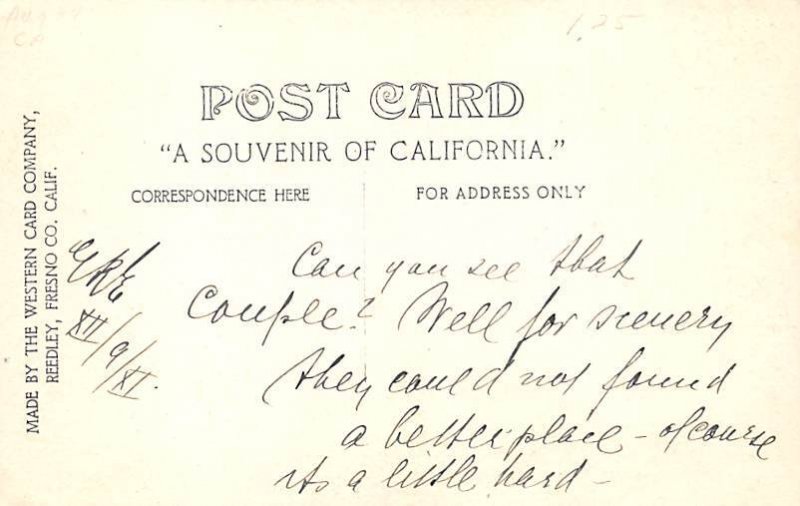 1.25
POST CARD
"A SOUVENIR OF CALIFORNIA."
CORRESPONDENCE HERE
FOR ADDRESS ONLY
MADE BY THE WESTERN CARD COMPANY,
REEDLEY, FRESNO CO. CALIF.
XII/9/XI.
Can you see that
Couple? Well for scenery
they could not found
a better place - of course
its a little hard -